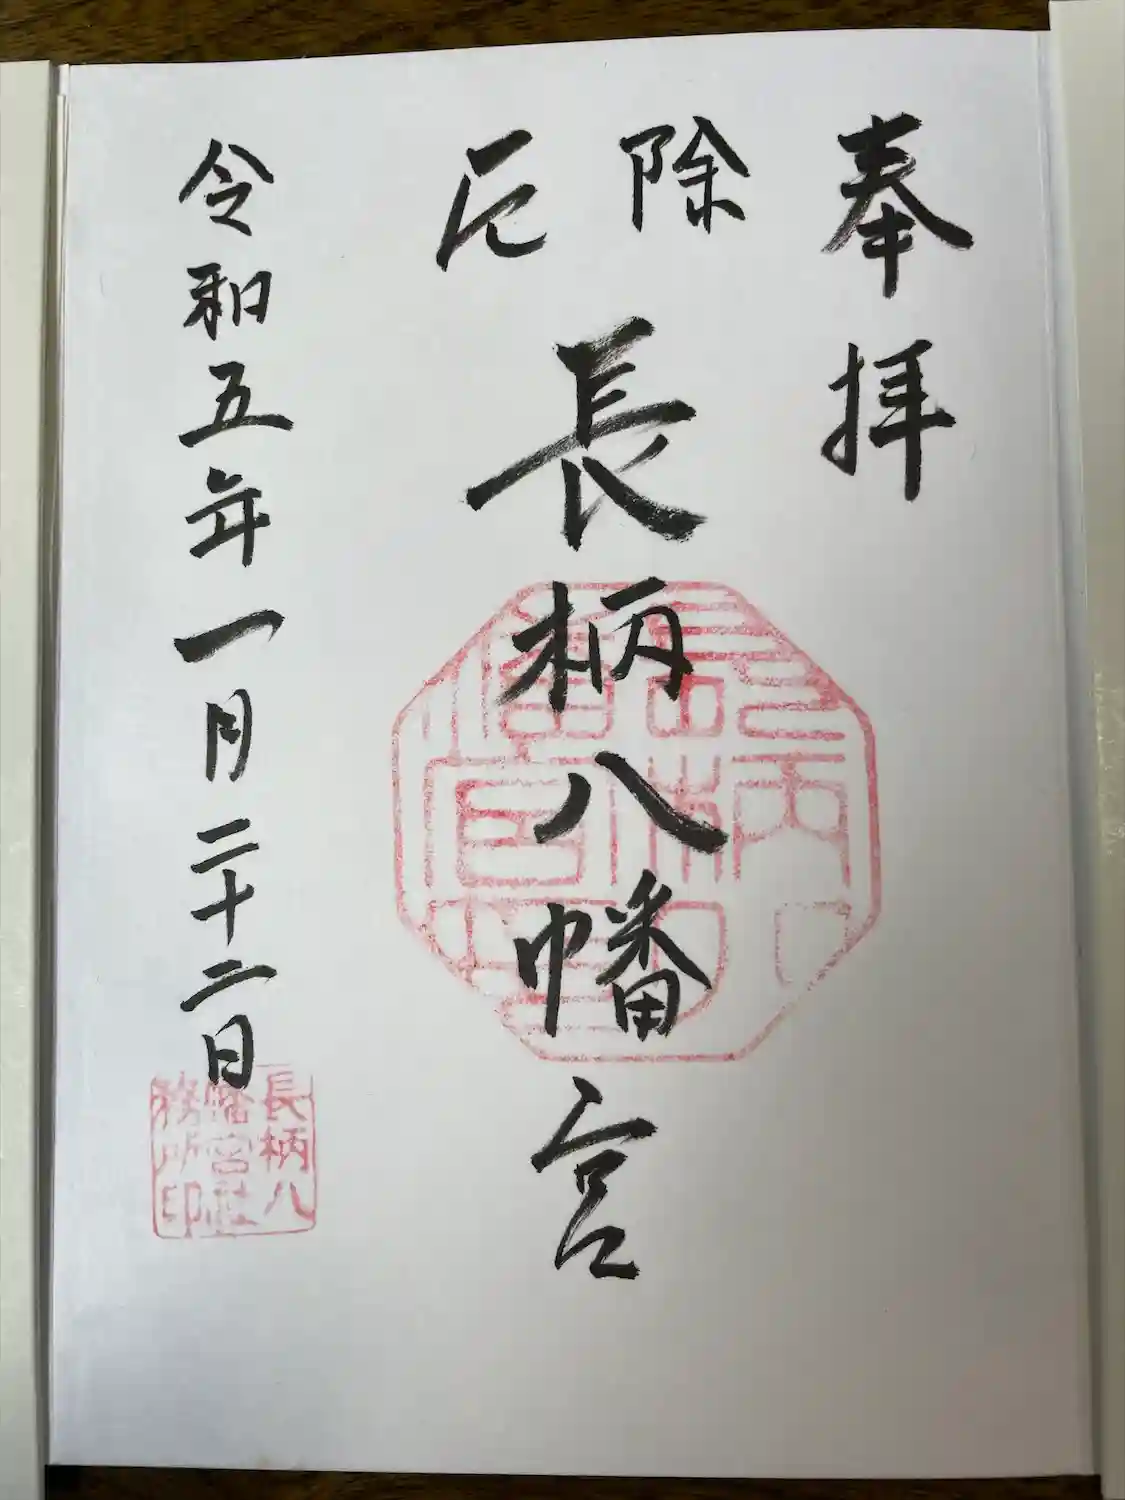 奉拝
除厄
長柄八幡宮
令和五年一月二十二日
長柄八
幡宮社
務所印